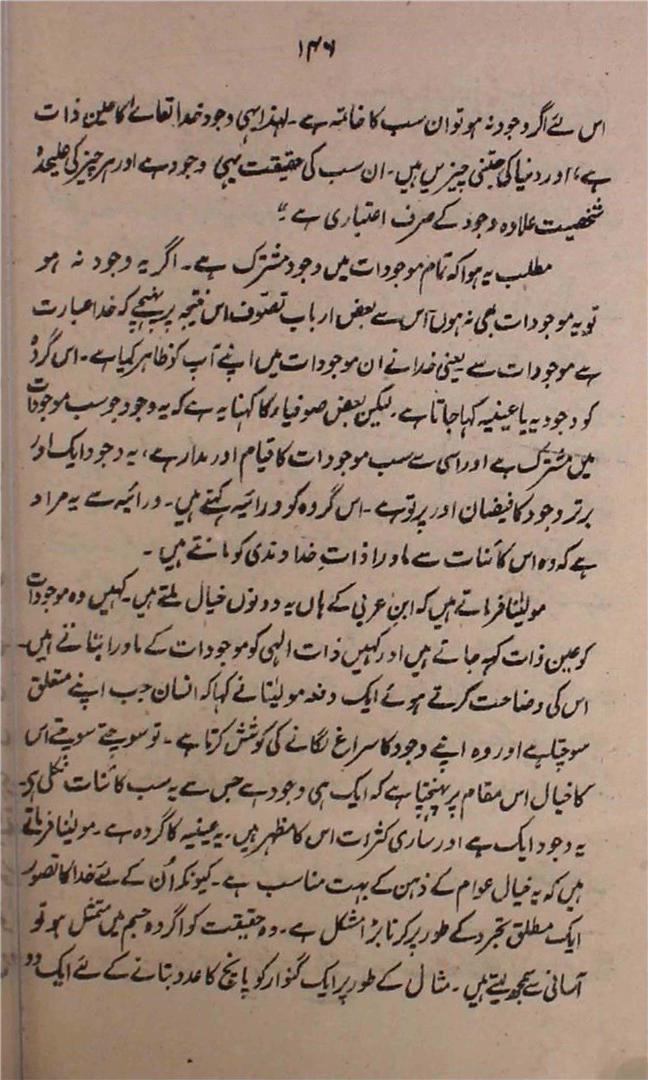 ۱۴۶
اس لئے اگر وجود نہ ہو تو ان سب کا خاتمہ ہے۔ لہٰذا یہی وجود خدا تعالےٰ کا عین ذات
ہے، اور دنیا کی جتنی چیزیں ہیں۔ ان سب کی حقیقت یہی وجود ہے اور ہر چیز کی علیحدہ
شخصیت علاوہ وجود کے صرف اعتباری ہے"
مطلب یہ ہوا کہ تمام موجودات میں وجود مشترک ہے۔ اگر یہ وجود نہ ہو
تو یہ موجودات بھی نہ ہوں اس سے بعض ارباب تصوّف اس نتیجہ پر پہنچے کہ خدا عبارت
ہے موجودات سے یعنی خدا نے ان موجودات میں اپنے آپ کو ظاہر کیا ہے۔ اس گروہ
کو وجودیہ یا عینیہ کہا جاتا ہے۔ لیکن بعض صوفیاء کا کہنا یہ ہے کہ یہ وجود جو سب موجودات
میں مشترک ہے اور اسی سے سب موجودات کا قیام اور مدار ہے، یہ وجود ایک اور
برتر وجود کا فیضان اور پرتو ہے۔ اس گروہ کو ورائیہ کہتے ہیں۔ ورائیہ سے یہ مراد
ہے کہ وہ اس کائنات سے ماورا ذاتِ خداوندی کو مانتے ہیں۔
مولیٰنا فرماتے ہیں کہ ابنِ عربی کے ہاں یہ دونوں خیال ملتے ہیں۔ کہیں وہ موجودات
کو عین ذات کہہ جاتے ہیں اور کہیں ذات الٰہی کو موجودات کے ماورا بتاتے ہیں۔
اس کی وضاحت کرتے ہوئے ایک دفعہ مولیٰنا نے کہا کہ انسان جب اپنے متعلق
سوچتا ہے اور وہ اپنے وجود کا سراغ لگانے کی کوشش کرتا ہے۔ تو سوچتے سوچتے اس
کا خیال اس مقام پر پہنچتا ہے کہ ایک ہی وجود ہے جس سے یہ سب کائنات نکلی ہے
یہ وجود ایک ہے اور ساری کثرات اس کا مظہر ہیں۔ یہ عینیہ کا گروہ ہے۔ مولیٰنا فرماتے
ہیں کہ یہ خیال عوام کے ذہن کے بہت مناسب ہے۔ کیونکہ اُن کے لئے خدا کا تصور
ایک مطلق تجرد کے طور پر کرنا بڑا مشکل ہے۔ وہ حقیقت کو اگر وہ جسم میں متمثل ہو تو
آسانی سے سمجھ لیتے ہیں۔ مثال کے طور پر ایک گنوار کو پانچ کا عدد بتانے کے لئے ایک دو